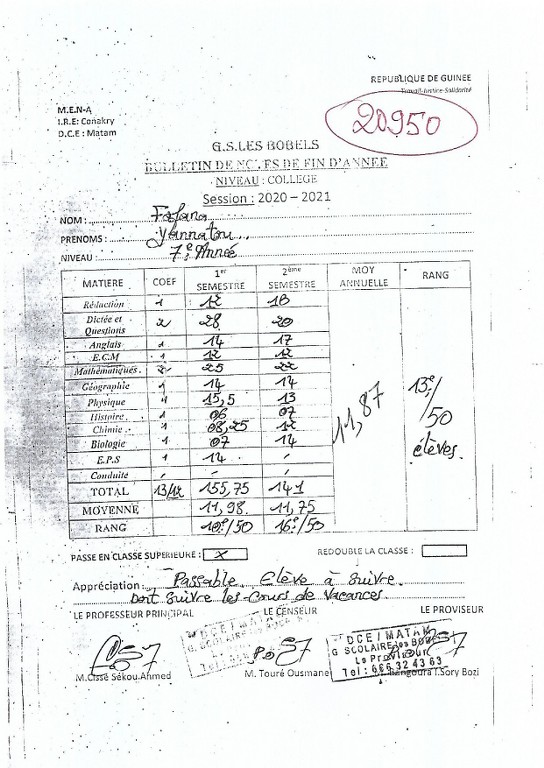 REPUBLIQUE DE GUINEE
Travail-Justice-Solidarité
M.E.N-A
I.R.E: Conakry
D.C.E : Matam
20950
G.S.LES BOBELS
BULLETIN DE NOTES DE FIN D'ANNEE
NIVEAU : COLLEGE
Session : 2020 – 2021
NOM : Fofana
PRENOMS : Yannatou
NIVEAU : 7e Année
MATIERE COEF 1er SEMESTRE 2ème SEMESTRE MOY ANNUELLE RANG
Rédaction 1 12 10
Dictée et Questions 2 28 20
Anglais 1 14 17
E.C.M 1 12 12
Mathématiques 2 25 22
Géographie 1 14 14
Physique 1 15,5 13
Histoire 1 06 07
Chimie 1 08,25 12
Biologie 1 07 14
E.P.S 1 14 -
Conduite - - -
TOTAL 13/12 155,75 141
MOYENNE 11,98 11,75
RANG 10e/50 16e/50
11,87
13e/50 élèves
PASSE EN CLASSE SUPERIEURE : X REDOUBLE LA CLASSE :
Appréciation : Passable. Elève à suivre.
Doit suivre les Cours de Vacances
LE PROFESSEUR PRINCIPAL LE CENSEUR LE PROVISEUR
DCE / MATAM
G SCOLAIRE les BOBELS
Le Proviseur
Tel : 666 32 43 63
M.Cissé Sékou Ahmed M. Touré Ousmane M. Bangoura I.Sory Bozi